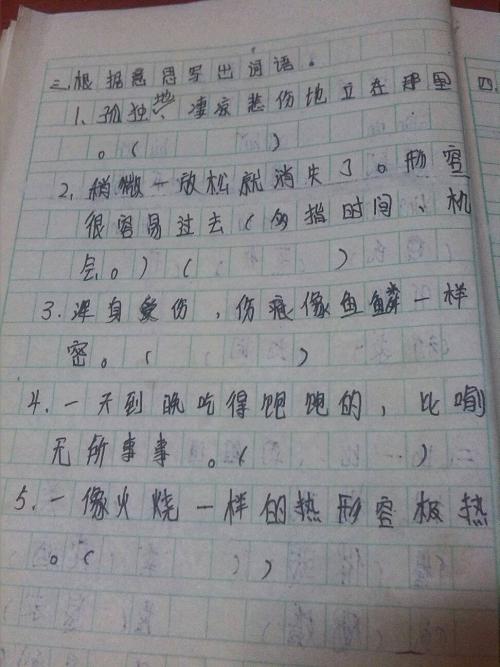 三、根据意思写出词语。
1、孤独地、凄凉悲伤地立在那里
。(　　　)
2、稍微一放松就消失了。形容
很容易过去(多指时间、机
会。)(　　　)
3.浑身受伤，伤痕像鱼鳞一样
密。(　　　)
4.一天到晚吃得饱饱的，比喻
无所事事。(　　　)
5.一像火烧一样的热形容极热
。(　　　))
四.